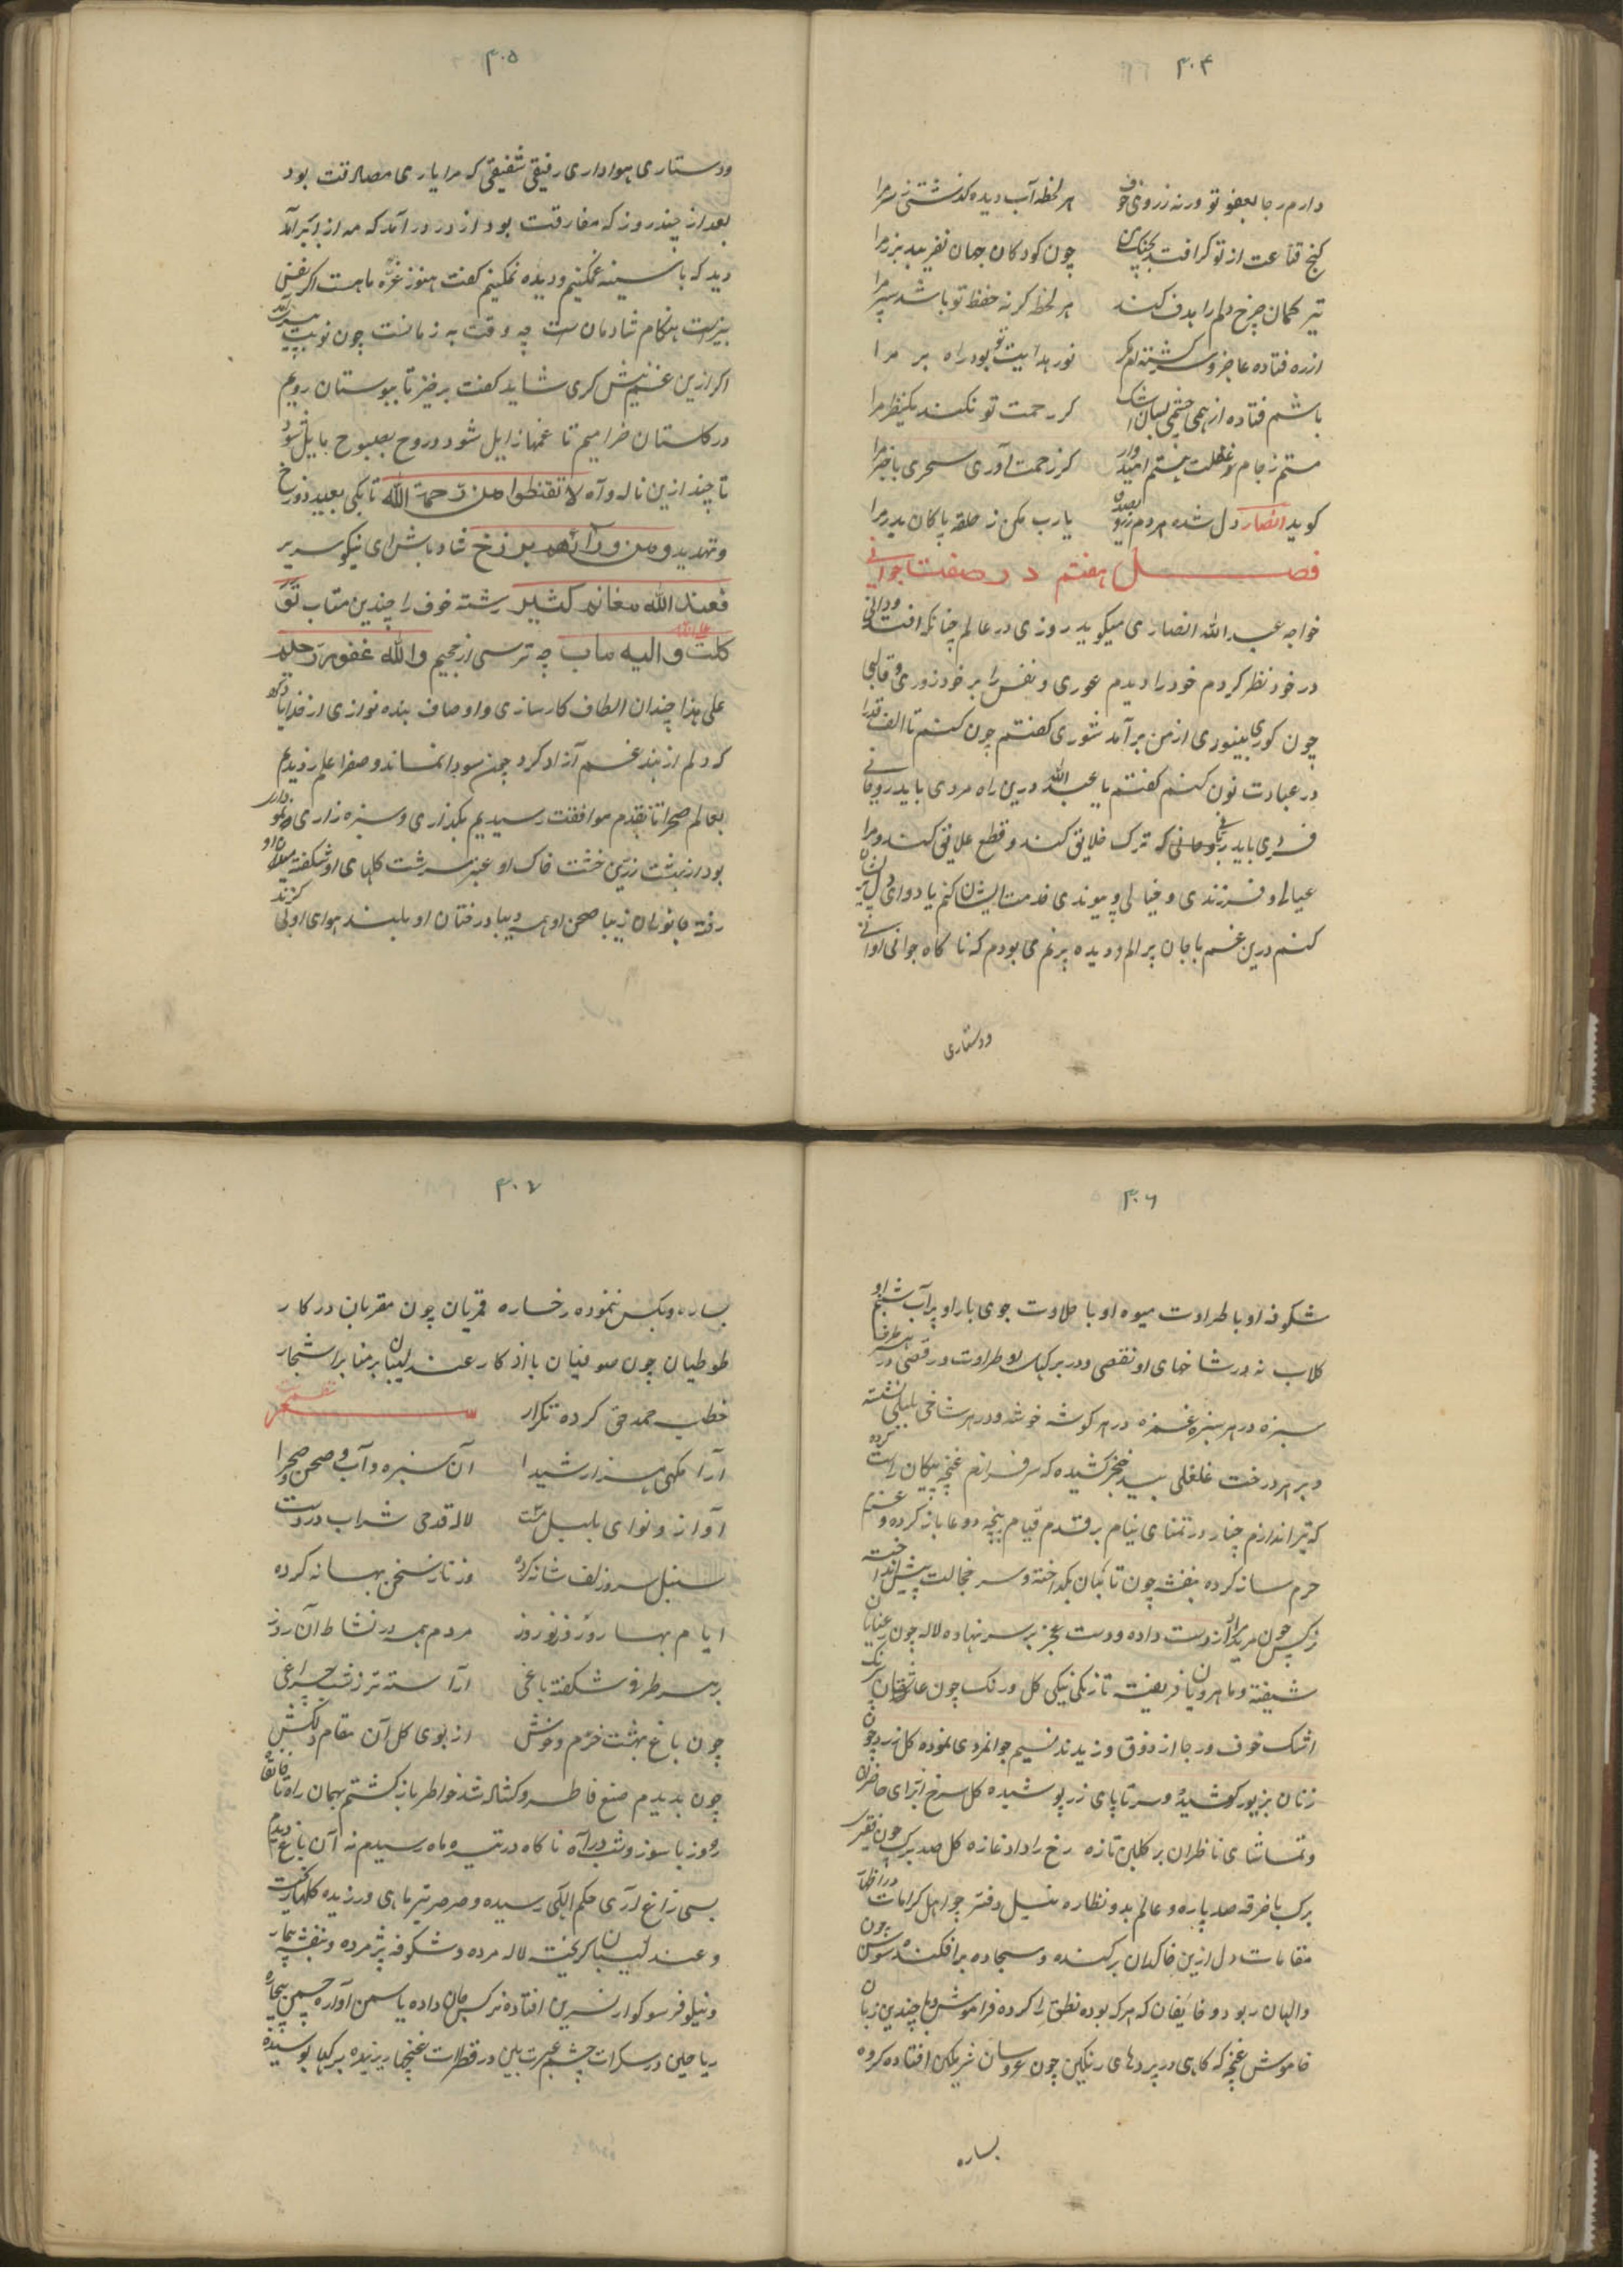 ۴۰۴
دارم رجا بعفو تو ورنه ز روی خوف هر لحظه آب دیده گذشتی ز سر مرا
کنج قناعت از تو گر افتد بچنگ من چون کودکان جهان نفریبد بزر مرا
تیر کمان چرخ دلم را هدف کند هر لحظه گر نه حفظ تو باشد سپر مرا
از ره فتاده عاجز و سرگشته ام مگر نور هدایت تو بود راه بر مرا
باشم فتاده از همه چشمی بسان اشک گر رحمت تو نکند یکنظر مرا
مستم ز جام غفلت و هستم امیدوار کز رحمت آوری سحری باخبر مرا
کوید انصار دل شده هر دم یا رب مکن ز حلقه پاکان بدر مرا
فصل هفتم در صفت جوانی
خواجه عبدالله انصاری میکوید روزی در عالم چنانکه افتد ودانی
در خود نظر کردم خود را دیدم عوری و نفس را بر خود زوری و قالبی
چون کوری بینوری از من برآمد شوری کفتم چون کنم تا الف قد را
در عبادت نون کنم کفتم یا عبدالله درین راه مردی باید روفانی
فردی باید که ترک خلایق کند و قطع علایق کند و مرا
عیالی و فرزندی و خیالی و پیوندی خدمت ایشان کنم یا دوای دل
کنم درین غم با جان پر الم و دیده پرنم می بودم که ناکاه جوانی
ودستاری
۴۰۵
ودستاری هواداری رفیقی شفیقی که مرا یاری مصادقت بود
بعد از چند روز که مفارقت بود از در درآمد که مه از ابر برآمد
دید که با سینه غمکینم و دیده نمکینم کفت هنوز غره ماهست اکر نفسی
هنکام شادمان ست چه وقت چون نوبت
اکر ازین غم شکری شاید کفت برخیز تا ببوستان رویم
در کلستان خرامیم تا غمها زایل شود و روح بصبوح مایل شود
تا چند ازین ناله و آه لا تقنطوا من رحمة الله تا بکی بعید دوزخ
و تهدید و من ورائهم برزخ شاد باش ای نیکو سریر
فعند الله مغانم کثیر رشته خوف را چندین متاب
توکلت و الیه متاب چه ترسی از جحیم والله غفور رحیم
علی هذا چندان الطاف کارسازی و اوصاف بنده نوازی از خدا یاد کرد
که دلم از بند غم آزاد کرد چمن سودا نماند و صفرا علم زدیم
بعالم صحرا تا بقدم موافقت رسیدیم بکذاری و سبزه زاری
بود از بهشت زرین خشت خاک او عنبر سرشت کلهای او شکفته
رفته جانوران زیبا صحن او همه دیبا درختان او بلند هوای او
۴۰۶
شکوفه او با طراوت میوه او با حلاوت جوی بار او پر آب شبنم او
کلاب نه در شاخهای او نقصی و در برکهای او طراوت و رقصی در هر طرف
سبزه در هر سبزه غمزه در هر کوشه خوشه و در هر شاخی بلبلی نشسته
و بر هر درخت غلغلی بید خنجر کشیده که سرفرازم غنچه پیکان راست کرده
که تیر اندازم چنار در تمنای نیام بر قدم قیام پنجه دعا باز کرده و عزم
حرم ساز کرده بنفشه چون تائبان بکداخته و سر خجالت پیش انداخته
نرکس چون مریدان دست داده و دست عجز بر سر نهاده لاله چون رعنایان
شیفته و ماهرویان فریفته تازکی نیکی کل و رنک چون عاشقان یکرنک
اشک خوف و رجا از ذوق وزیدند نسیم جوانمردی نموده کل زرد چون
زنان بزیور کوشیده و سر تا پای زر پوشیده کل سرخ برای حاضران
و تماشای ناظران بر کلبن تازه رخ را داده غازه کل صد برک چون فقیر
برک با خرقه صد پاره و عالم بدو نظاره دفتر چو اهل کرامات
مقامات دل ازین خاکدان برکنده و سجاده برافکنده سوسن چون
والهان ربود و خایفان که هرکه بوده نطق را کرده فراموش و با چندین زبان
خاموش غنچه که کاهی در پردهای رنکین چون عروسان شرمکین افتاده کروه
بساره
۴۰۷
بساره و بکس ننموده رخساره قمریان چون مقریان در کار
طوطیان چون صوفیان با اذکار عندلیبان بر منابر اشجار
خطیب حمد حق کرده تکرار نظم
آرامکهی هزار شیدا آن سبزه و آب و صحن صحرا
آواز و نوای بلبل مست لاله قدحی شراب در دست
سنبل سر زلف شانه کرده وز ناز سخن بهانه کرده
ایام بهار و روز نوروز مردم همه در نشاط آن روز
بر هر طرف شکفته باغی آراسته تر ز شب چراغی
چون باغ بهشت خرم و خوش از بوی کل آن مقام دلکش
چون بدیدم صنع فاطر و کشاده شد خواطر باز کشتم بهمان راه تا خانقاه
روز با سوز و شب در آه ناکاه در تیر ماه رسیدم نه آن باغ دیدم
بسی زاغ آری حکم الهی رسیده و صرصر تیر ماهی ورزیده کلها رفت
و عندلیبان کریخت لاله مرده و شکوفه پژمرده و بنفشه بیمار
و نیلوفر سوکوار نسرین افتاده نرکس جان داده یاسمن آواره چمن بیچاره
ریاحین در سکرات چشم عبرت بین در قطرات غنچها ریزیده برکها پوسیده